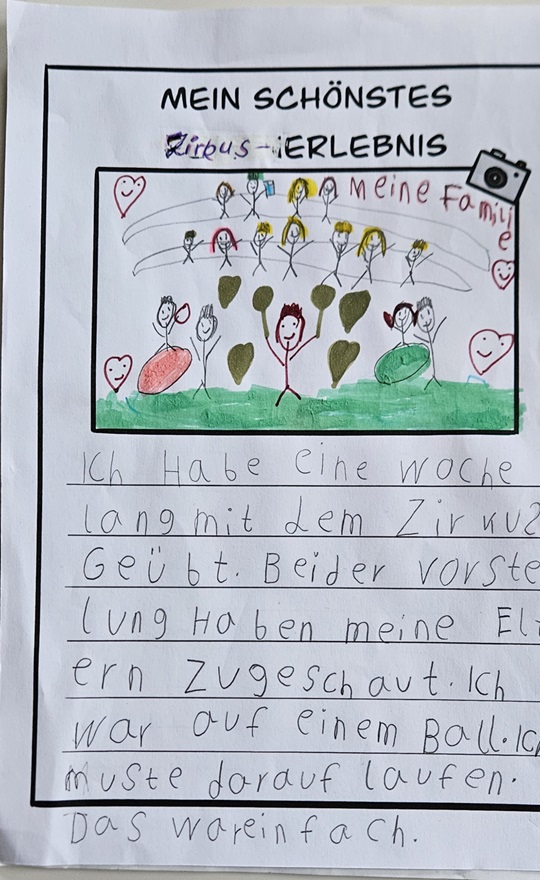 MEIN SCHÖNSTES
Zirkus-ERLEBNIS
Meine Familie
Ich Habe eine woche
lang mit dem Zirkus
Geübt. Beider vorste
lung Haben meine Elt
ern zugeschaut. Ich
war auf einem Ball. Ich
muste darauf laufen.
Das wareinfach.